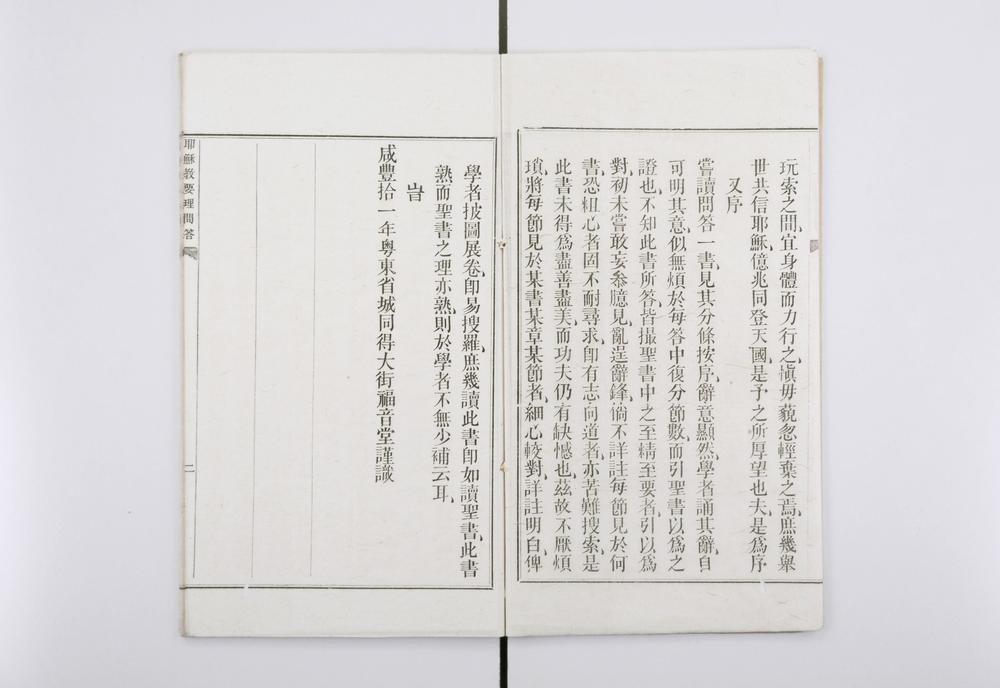 玩索之間、宜身體而力行之、愼毋藐忽輕棄之焉、庶幾舉
世共信耶穌、億兆同登天國、是予之所厚望也、夫是爲序
又序
嘗讀問答一書、見其分條按序、辭意顯然、學者誦其辭、自
可明其意、似無煩於每答中復分節數、而引聖書以爲之
證也、不知此書所答、皆撮聖書中之至精至要者、引以爲
對、初未嘗敢妄叅臆見、亂逞辭鋒、倘不詳註每節見於何
書、恐粗心者固不耐尋求、卽有志向道者、亦苦難搜索、是
此書未得爲盡善盡美、而功夫仍有缺憾也、茲故不厭煩
瑣、將每節見於某書某章某節者、細心較對、詳註明白、俾
學者披圖展卷、卽易搜羅、庶幾讀此書卽如讀聖書、此書
熟而聖書之理亦熟、則於學者不無少補云耳、
旹
咸豐拾一年粵東省城同得大街福音堂謹識
耶穌教要理問答
二